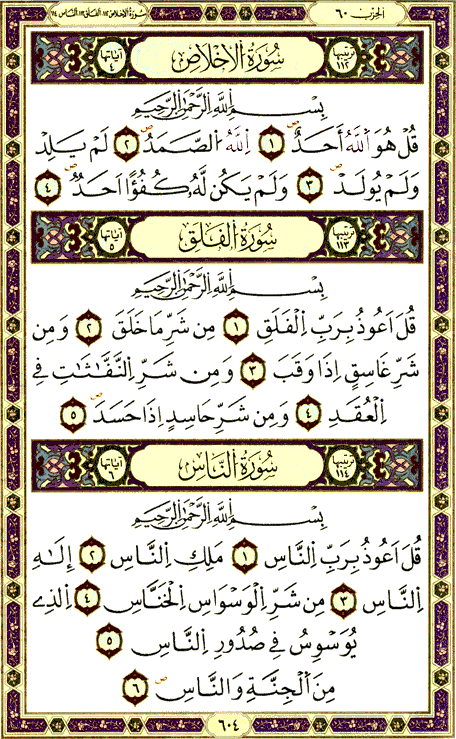 الحزب ٦٠
سورة الإخلاص ١١٢ الفلق ١١٣ الناس ١١٤
ترتيبها ١١٢ سُورَةُ الإِخْلَاصِ آياتها ٤
بِسْمِ اِ۬للَّهِ اِ۬لرَّحْمَٰنِ اِ۬لرَّحِيمِ
قُلْ هُوَ اَ۬للَّهُ أَحَدٌۖ ١ اِ۬للَّهُ اُ۬لصَّمَدُۖ ٢ لَمْ يَلِدْ
وَلَمْ يُولَدْۖ ٣ وَلَمْ يَكُن لَّهُۥ كُفُؤاً اَحَدٌۖ ٤
ترتيبها ١١٣ سُورَةُ اَ۬لْفَلَقِ آياتها ٥
بِسْمِ اِ۬للَّهِ اِ۬لرَّحْمَٰنِ اِ۬لرَّحِيمِ
قُلَ اَعُوذُ بِرَبِّ اِ۬لْفَلَقِ ١ مِن شَرِّ مَا خَلَقَ ٢ وَمِن
شَرِّ غَاسِقٍ اِذَا وَقَبَ ٣ وَمِن شَرِّ اِ۬لنَّفَّٰثَٰتِ فِے
اِ۬لْعُقَدِ ٤ وَمِن شَرِّ حَاسِدٍ اِذَا حَسَدَۖ ٥
ترتيبها ١١٤ سُورَةُ اَ۬لنَّاسِ آياتها ٦
بِسْمِ اِ۬للَّهِ اِ۬لرَّحْمَٰنِ اِ۬لرَّحِيمِ
قُلَ اَعُوذُ بِرَبِّ اِ۬لنَّاسِ ١ مَلِكِ اِ۬لنَّاسِ ٢ إِلَٰهِ
اِ۬لنَّاسِ ٣ مِن شَرِّ اِ۬لْوَسْوَاسِ اِ۬لْخَنَّاسِ ٤ اِ۬لذِے
يُوَسْوِسُ فِے صُدُورِ اِ۬لنَّاسِ ٥
مِنَ اَ۬لْجِنَّةِ وَالنَّاسِۖ ٦
٦٠٤